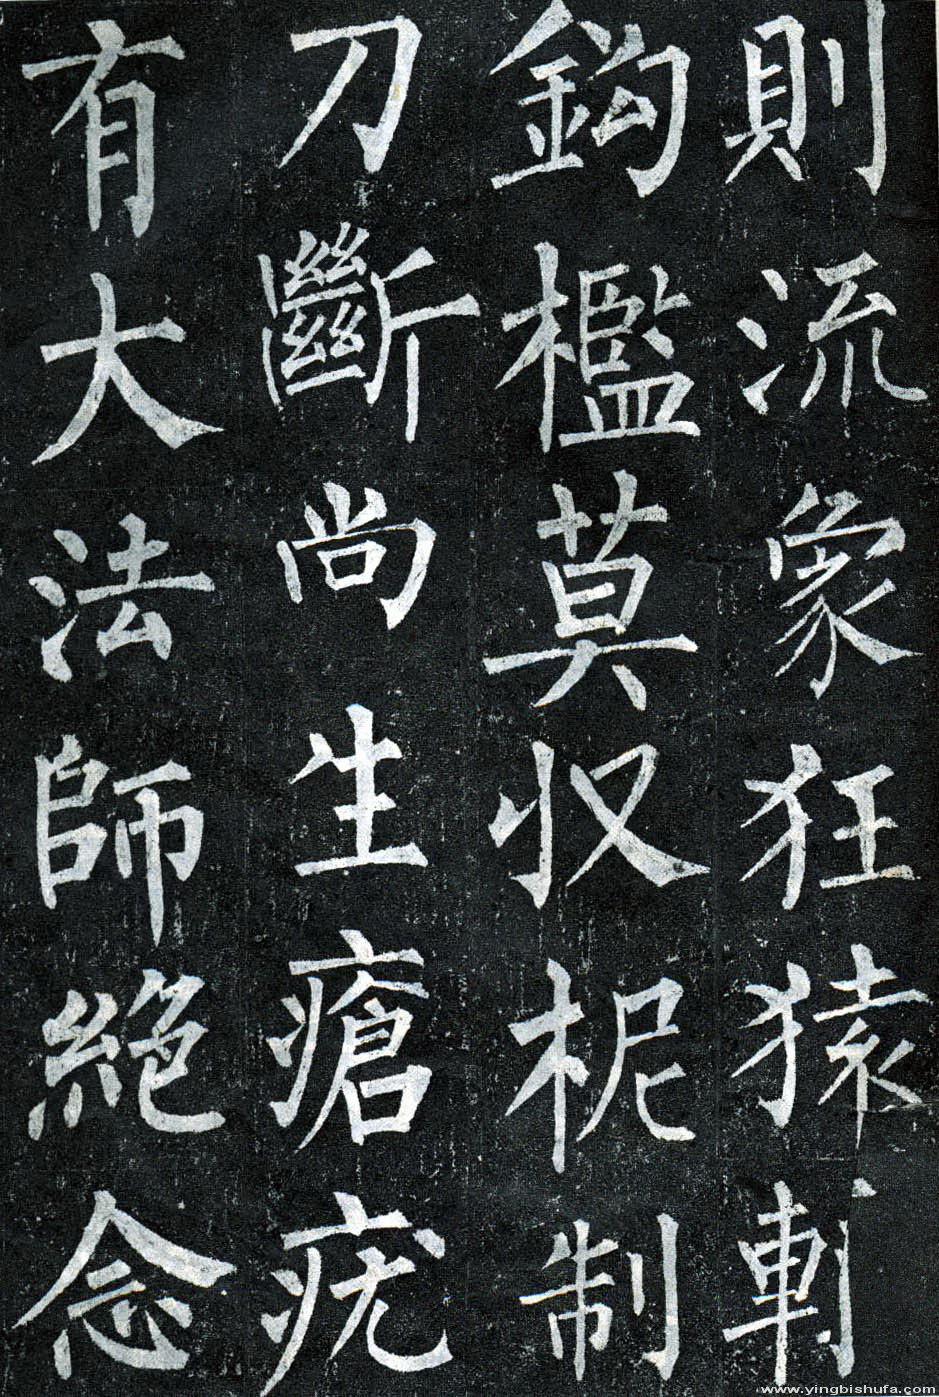 則流象狂猿
鈎檻莫収柅制
刀斷尚生瘡疣
有大法師絶念
www.yingbishufa.com